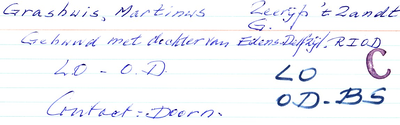 Grashuis, Martinus Zeerijp 't Zandt
G.
Gehuwd met dochter van Edens Delfzijl. RIOD
LO - O.D. LO C
OD-BS
Contact = Doorn.